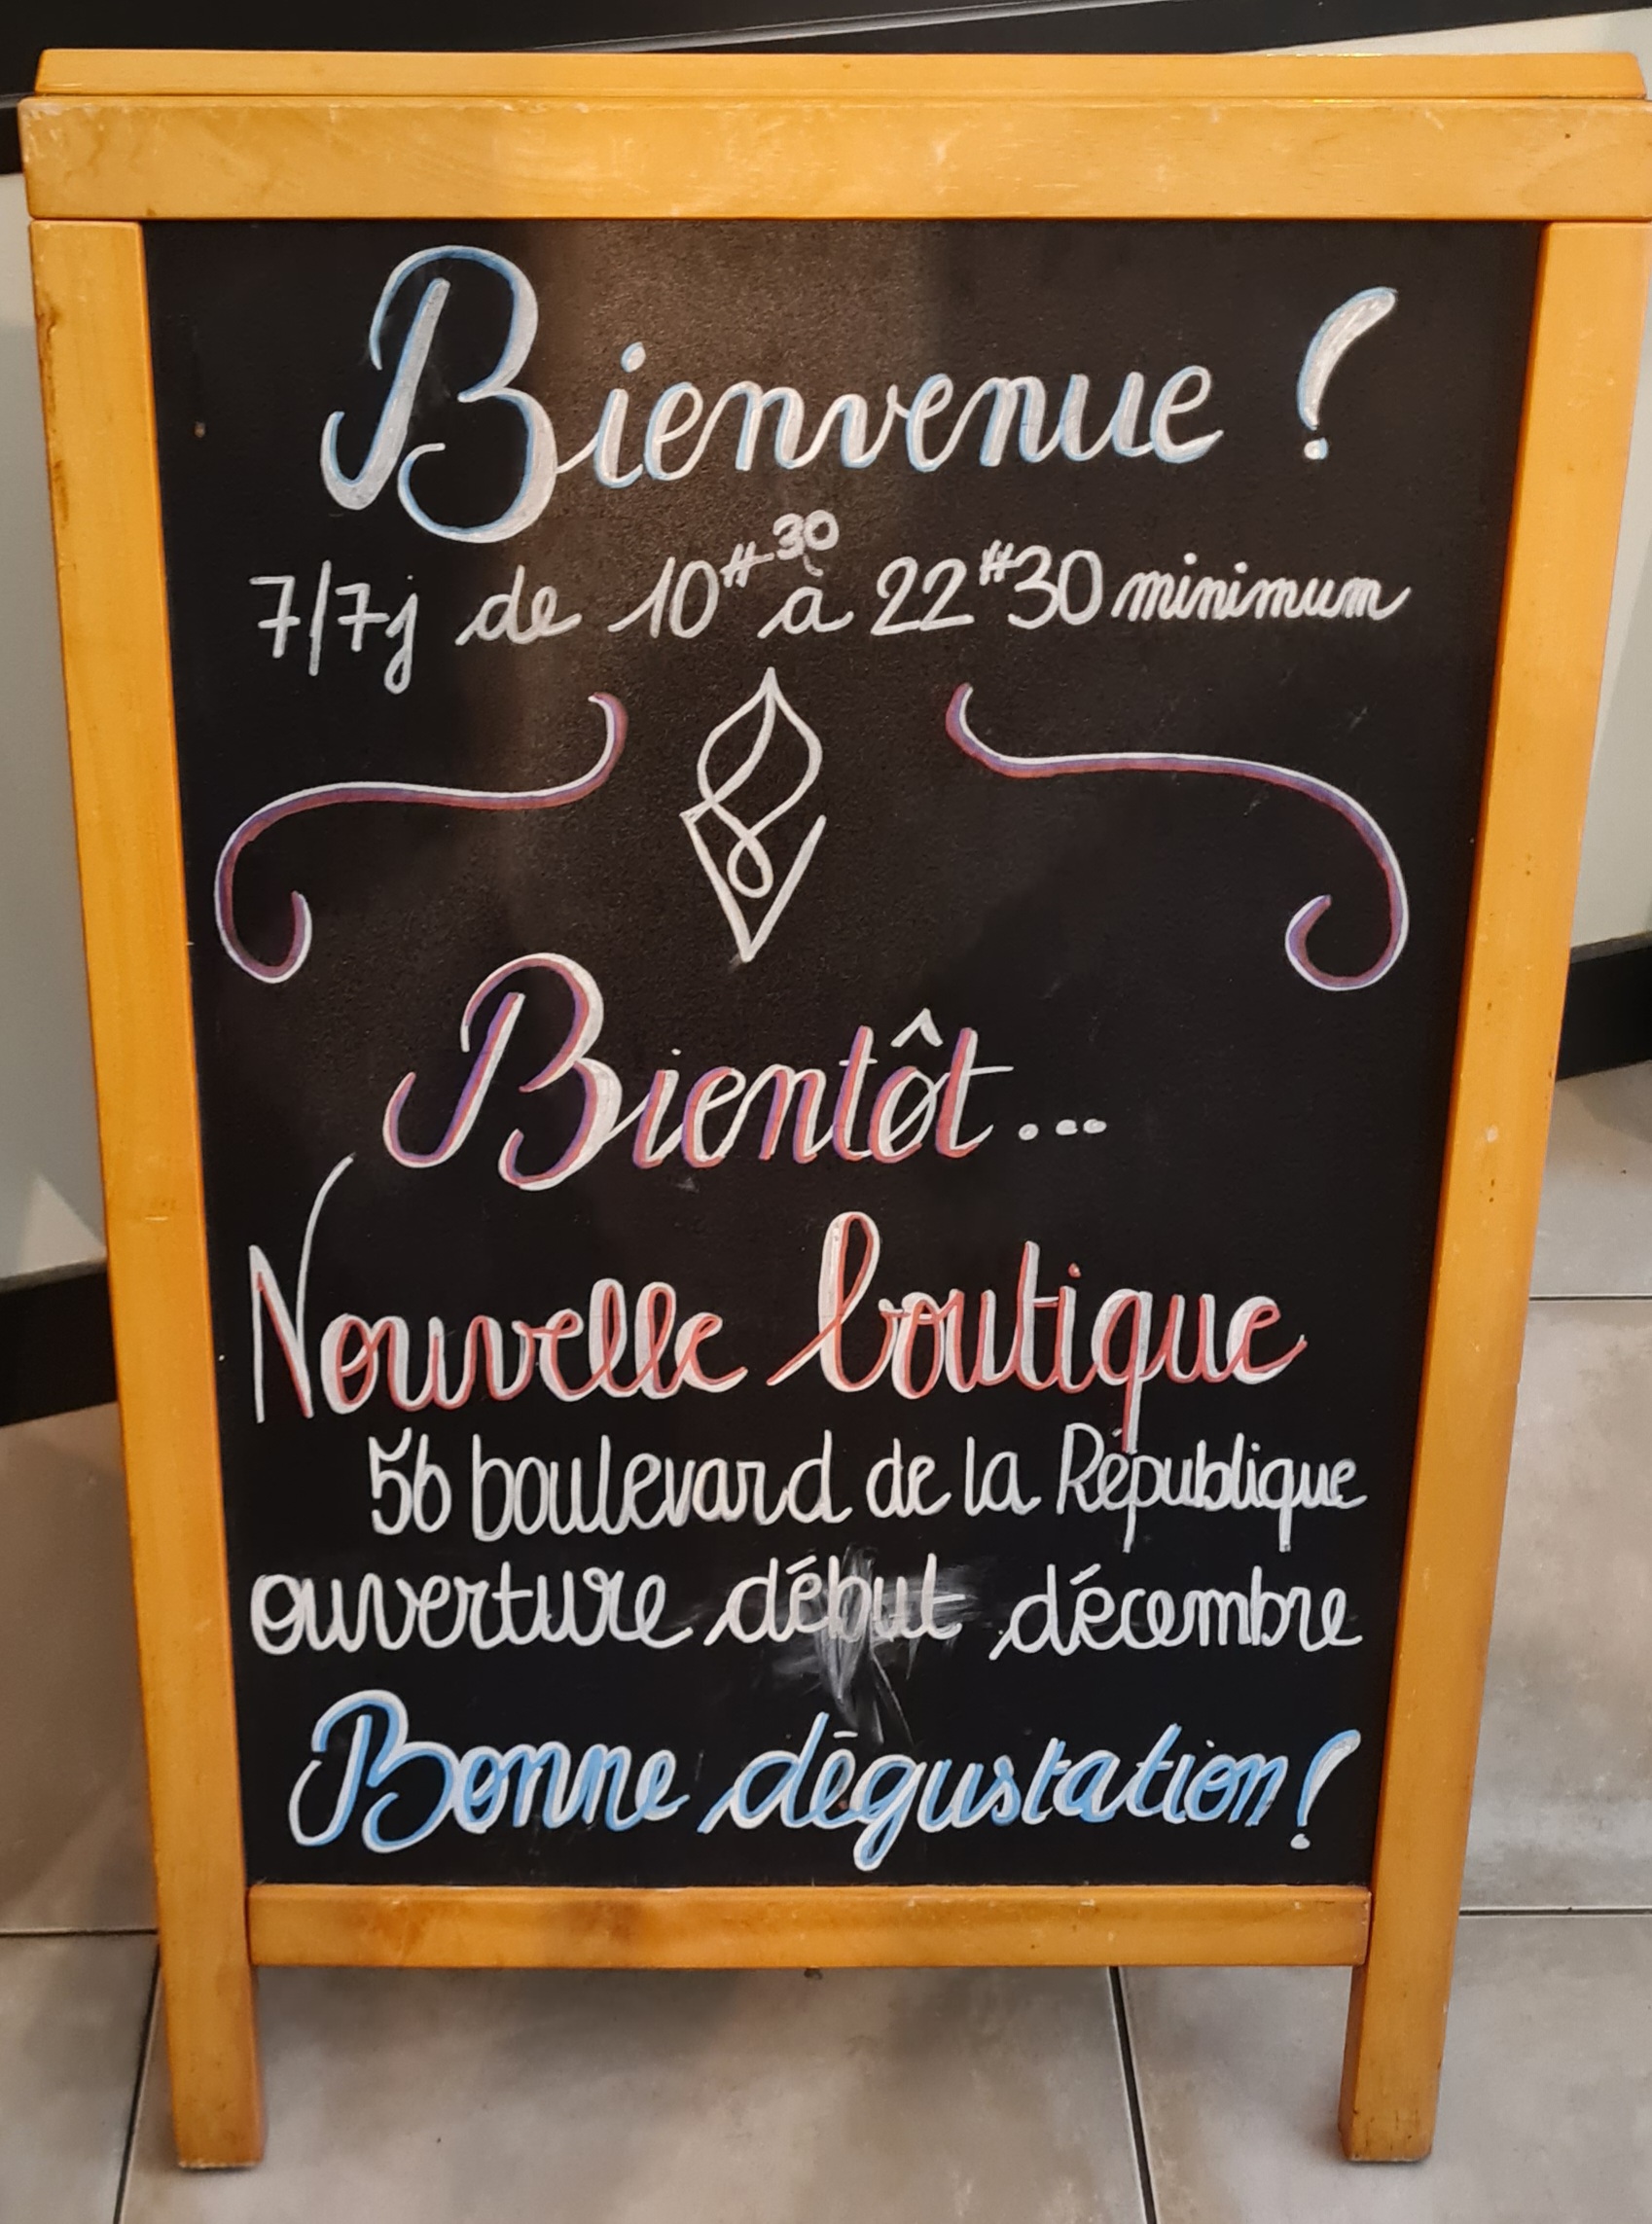 Bienvenue !
7/7j de 10H30 à 22H30 minimum
Bientôt...
Nouvelle boutique
56 boulevard de la République
ouverture début décembre
Bonne dégustation !